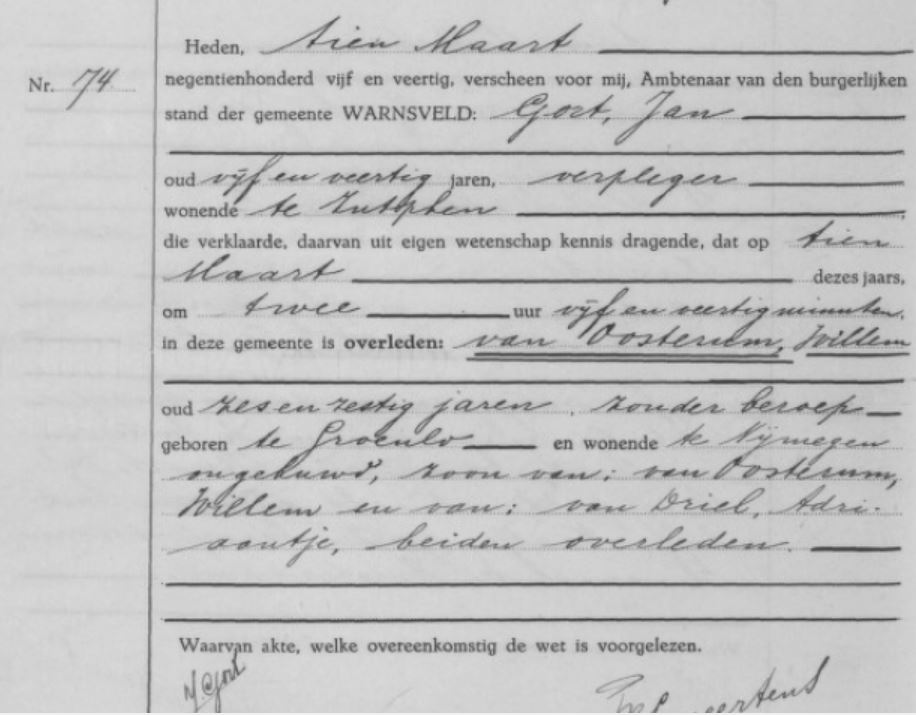 Heden, tien Maart
Nr. 74.
negentienhonderd vijf en veertig, verscheen voor mij, Ambtenaar van den burgerlijken
stand der gemeente WARNSVELD: Gort, Jan
oud vijf en veertig jaren, verpleger
wonende te Zutphen,
die verklaarde, daarvan uit eigen wetenschap kennis dragende, dat op tien
Maart dezes jaars,
om twee uur vijf en veertig minuten,
in deze gemeente is overleden: van Oosterum, Willem
oud zes en zestig jaren, zonder beroep
geboren te Groenlo en wonende te Nijmegen
ongehuwd, zoon van: van Oosterum,
Willem en van: van Driel, Adri-
aantje, beiden overleden.
Waarvan akte, welke overeenkomstig de wet is voorgelezen.
J Gort